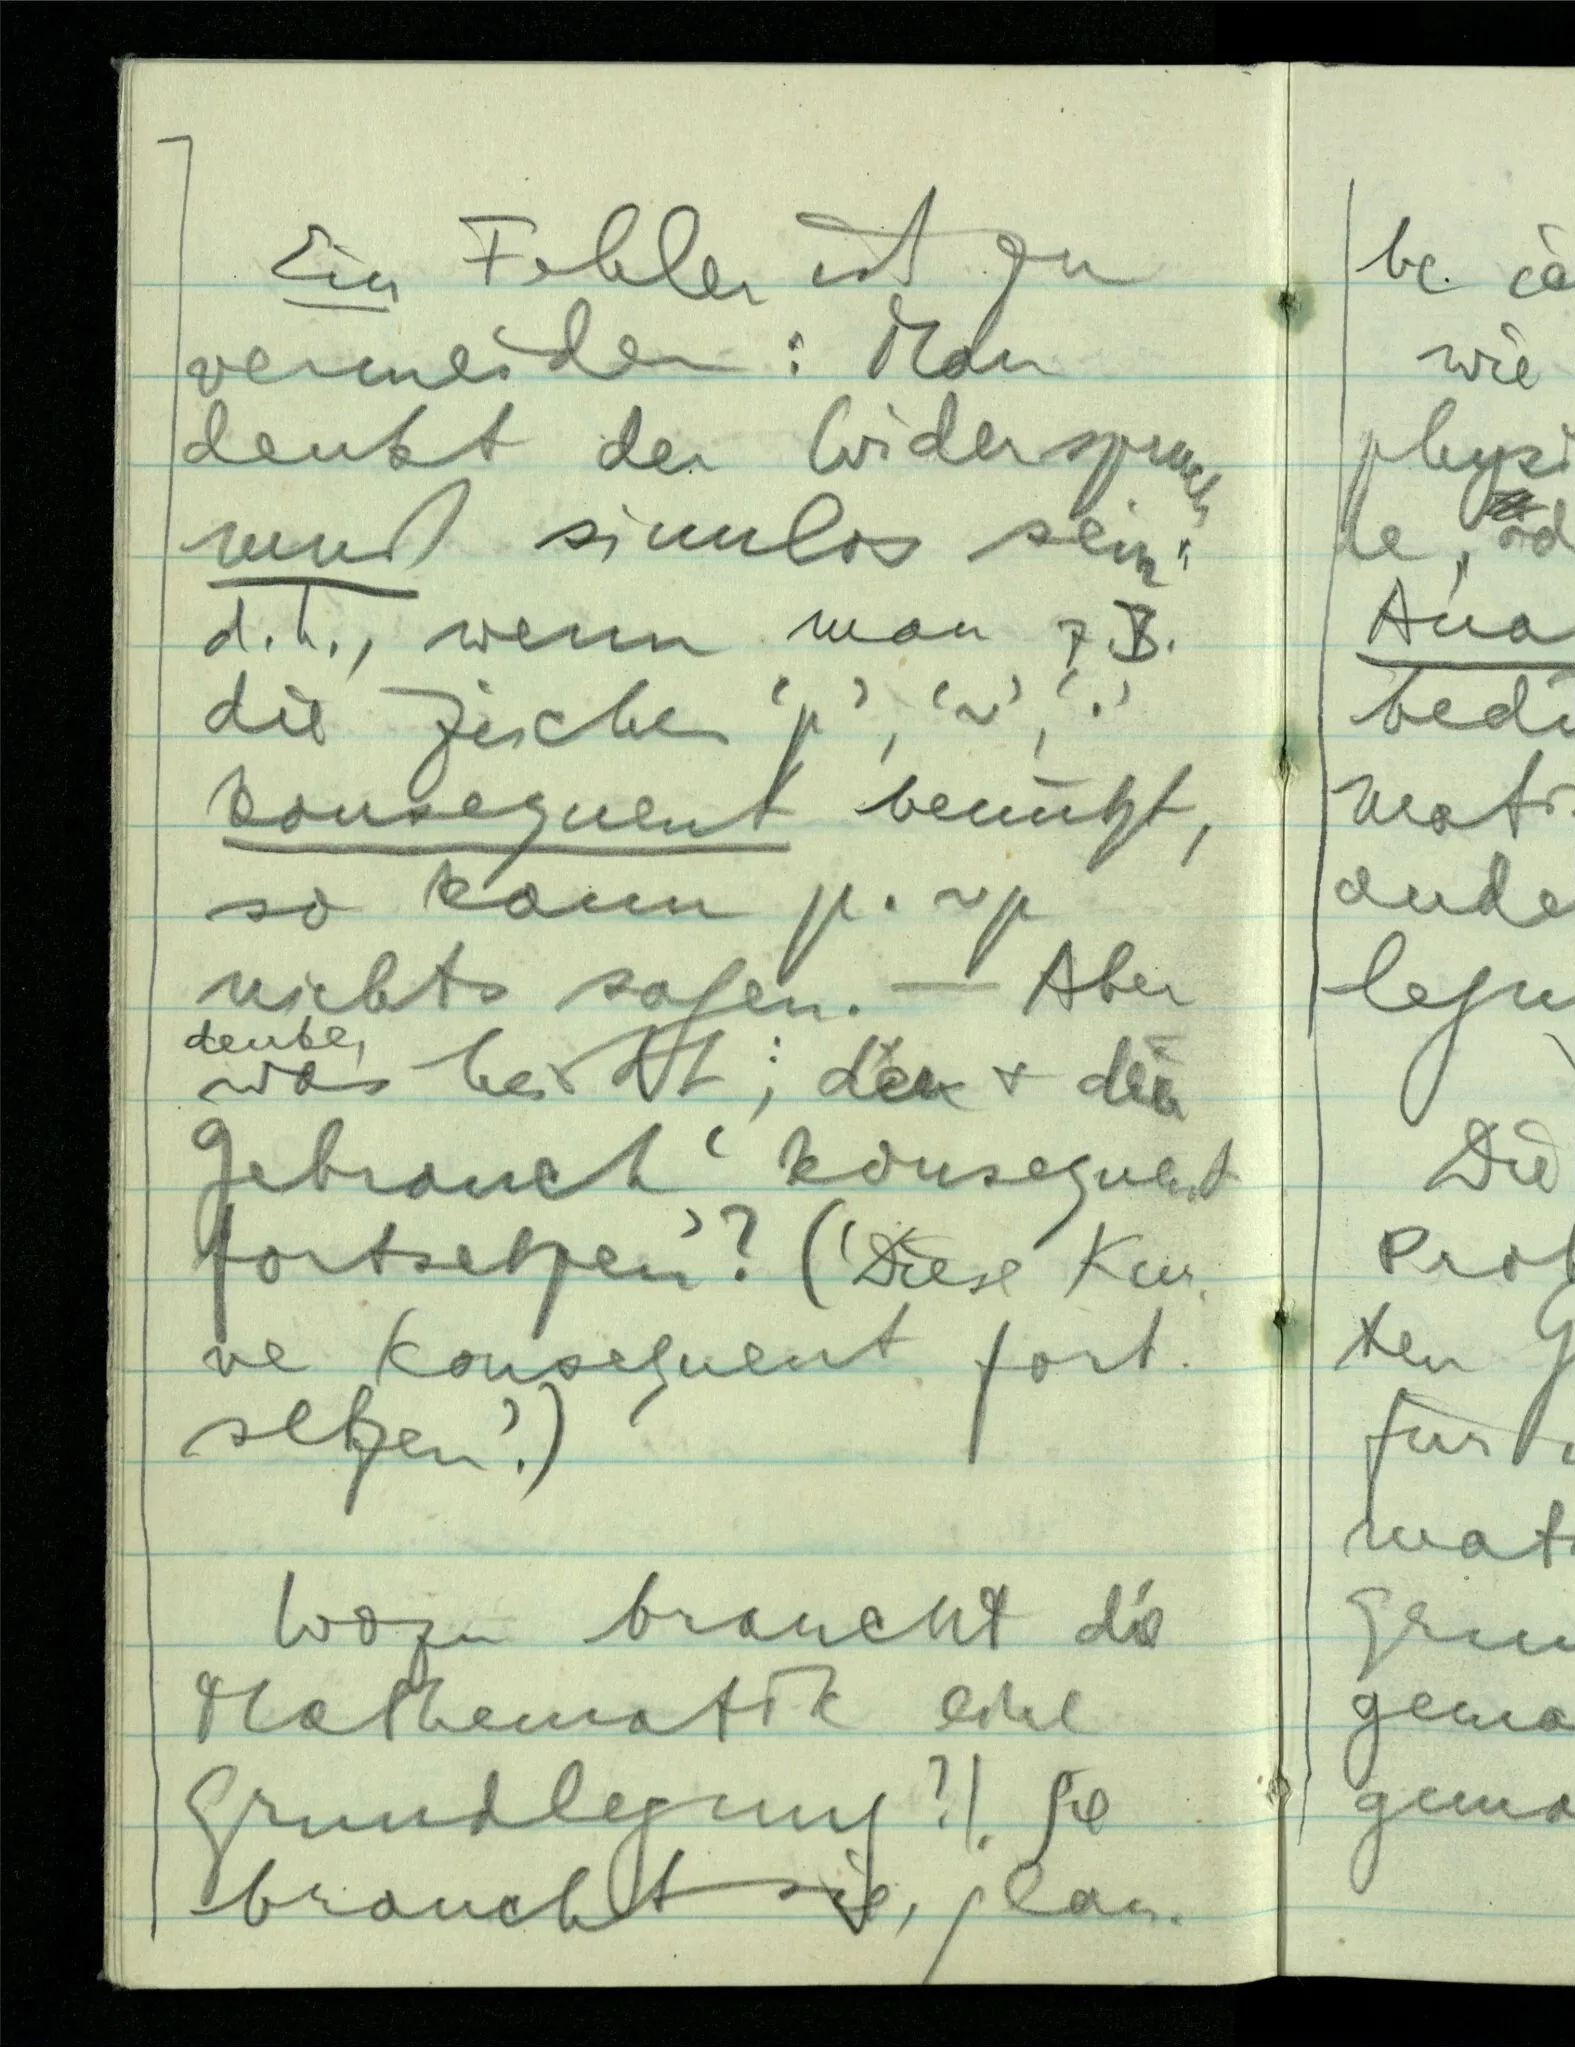 Ein Fehler ist zu
vermeiden: Man
denkt der Widerspruch
muß sinnlos sein:
d.h., wenn man z.B.
die Zeichen ‘p’, ‘~’, ‘.’
konsequent benützt,
so kann p. ~p
nichts sagen. — Aber
denke,
was heißt: den & den
Gebrauch ‘konsequent
fortsetzen’? (‘Diese Kur-
ve konsequent fort-
setzen’.)
Wozu braucht die
Mathematik eine
Grundlegung?! Sie
braucht sie,
be
wie
physi
le,
Ana
bedi
mati
ande
legu
Die
Prob
ten G
für
mat
Gru
gema
gema